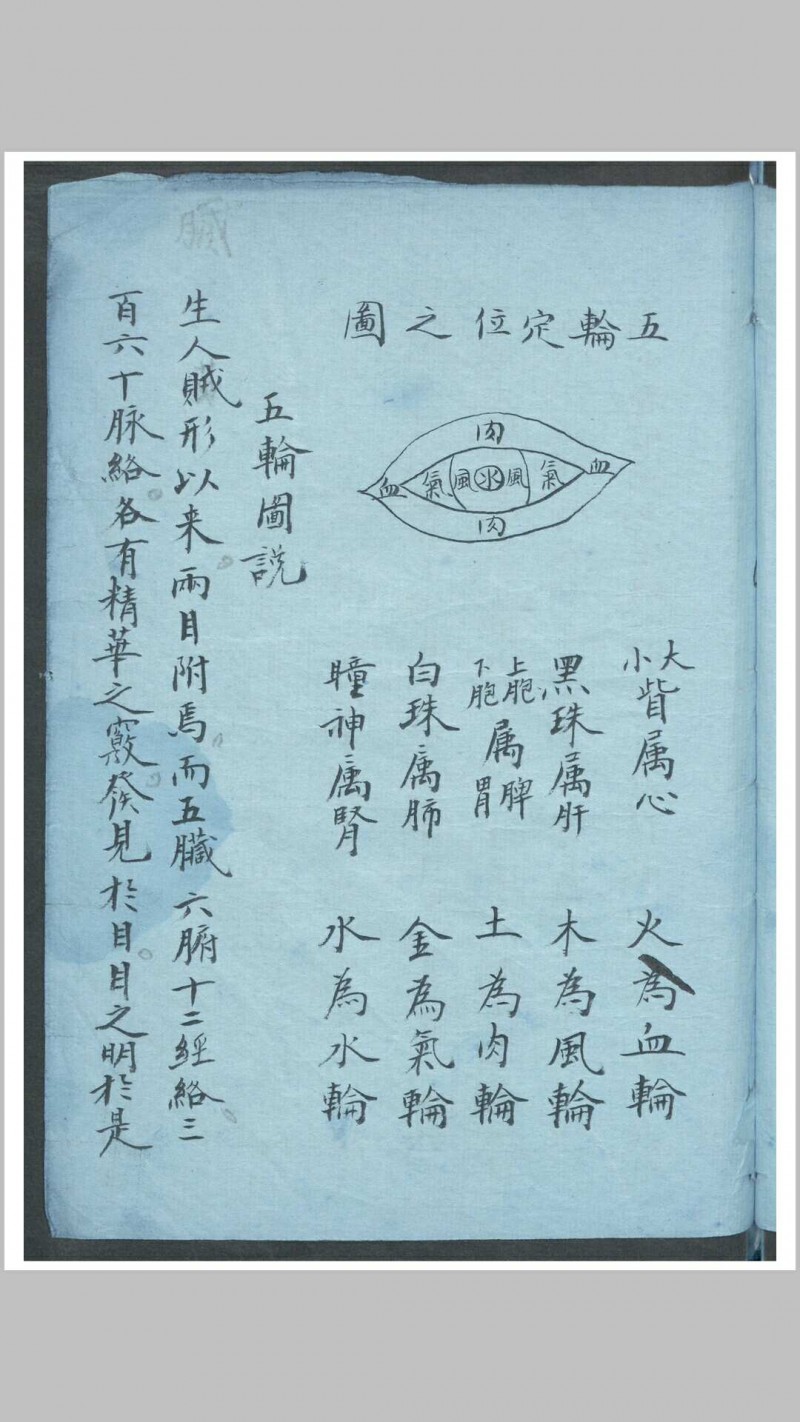 五輪定位之圖
肉
血 氣 風 水 風 氣 血
肉
大小眥属心 火為血輪
黑珠属肝 木為風輪
上胞下胞属脾胃 土為肉輪
白珠属肺 金為氣輪
瞳神属腎 水為水輪
五輪圖説
生人賊形以来兩目附焉而五臟六腑十二經絡三
百六十脉絡各有精華之竅發見於目目之明於是
臟